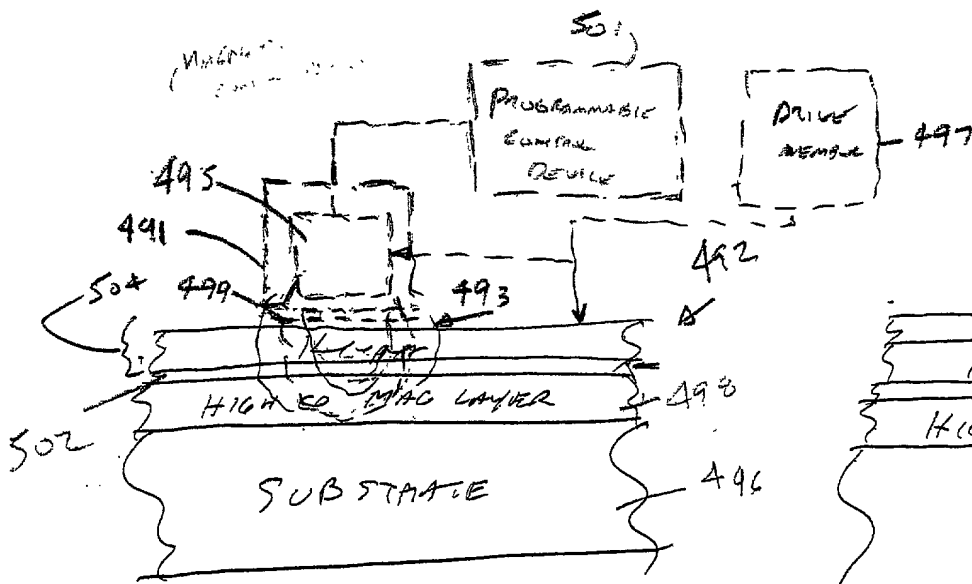 501
PROGRAMMABLE
CONTROL
DEVICE
DRIVE
MEMBER
497
495
491
492
504
499
493
HIGH CO MAG LAYER
498
502
SUBSTRATE
496